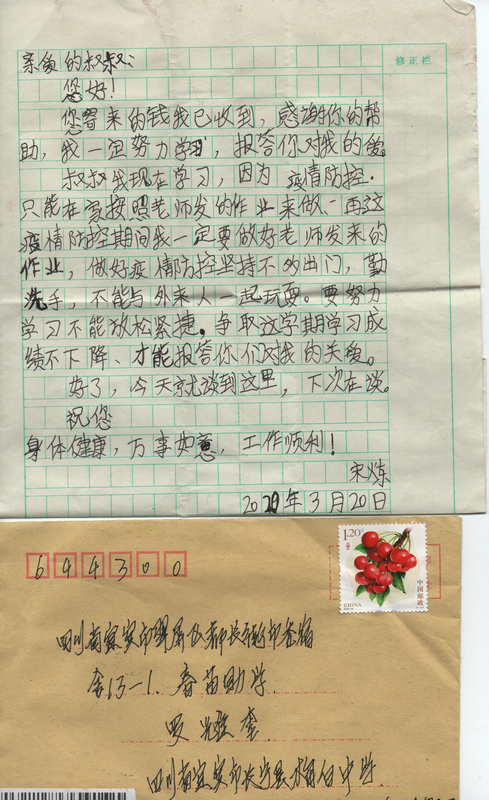 修正栏
亲爱的叔叔：
您好！
您寄来的钱我已收到，感谢你的帮
助，我一定努力学习，报答你对我的爱。
叔叔我现在学习，因为疫情防控.
只能在家按照老师发的作业来做、再这
疫情防控期间我一定要做好老师发来的
作业，做好疫情防控坚持不多出门，勤
洗手，不能与外来人一起玩耍。要努力
学习不能放松紧捷。争取这学期学习成
绩不下降、才能报答你们对我的关爱。
好了，今天就谈到这里，下次在谈。
祝您
身体健康，万事如意，工作顺利！
宋炼
年3月20日
644300
1.20元
中国邮政
CHINA
四川省宜宾市
13-1. 春苗助学.
罗
四川省宜宾市长宁县梅白中学